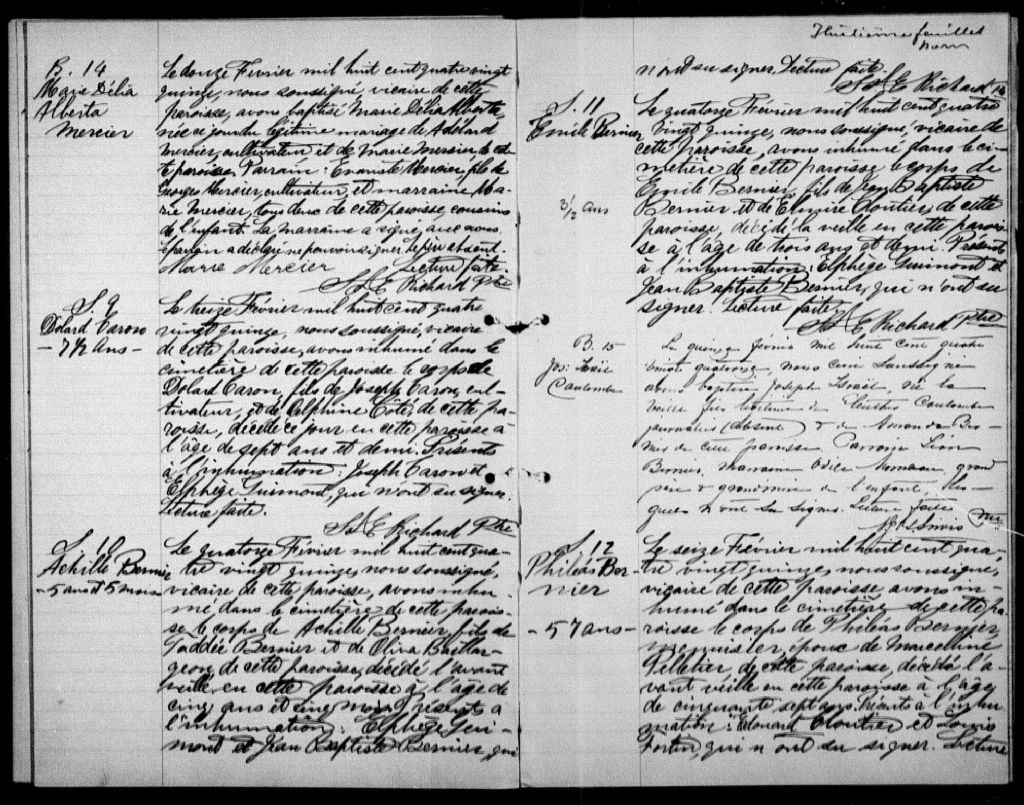 B. 14
Marie Délia
Alberta
Mercier
Le douze Février mil huit cent quatre vingt
quinze, nous soussigné, vicaire de cette
paroisse, avons baptisé Marie Délia Alberta
née ce jour du légitime mariage de Adélard
Mercier, cultivateur et de Marie Mercier, de cet-
te paroisse. Parrain: Evariste Mercier fils de
Georges Mercier, cultivateur, et marraine Ma-
rie Mercier, tous deux de cette paroisse, cousins
de l'enfant. La marraine a signé avec nous.
Le parrain a déclaré ne pouvoir signer. Le père absent.
Marie Mercier Lecture faite.
E Richard Ptre
S. 9
Dolard Caron
- 7 1/2 Ans -
Le treize Février mil huit cent quatre
vingt quinze, nous soussigné, vicaire
de cette paroisse, avons inhumé dans le
cimetière de cette paroisse le corps de
Dolard Caron, fils de Joseph Caron, cul-
tivateur, et de Delphine Côté, de cette pa-
roisse, décédé ce jour en cette paroisse à
l'âge de sept ans et demi. Présents
à l'inhumation: Joseph Caron et
Elphège Guimont, qui n'ont su signer.
Lecture faite.
E Richard Ptre
S. 10
Achille Bernier
- 5 ans et 5 mois
Le quatorze Février mil huit cent qua-
tre vingt quinze, nous soussigné,
vicaire de cette paroisse, avons inhu-
mé dans le cimetière de cette parois-
se le corps de Achille Bernier, fils de
Taddée Bernier et de Oliva Baillar-
geon, de cette paroisse, décédé l'avant
veille en cette paroisse à l'âge de
cinq ans et cinq mois. Présents à
l'inhumation: Elphège Gui-
mont et Jean Baptiste Bernier, qui
Huitième feuillet
n'ont su signer. Lecture faite
E Richard Ptre
S. 11
Emile Bernier
3 1/2 Ans
Le quatorze Février mil huit cent quatre
vingt quinze, nous soussigné, vicaire de
cette paroisse, avons inhumé dans le ci-
metière de cette paroisse le corps de
Emile Bernier, fils de Jean Baptiste
Bernier et de Elmire Cloutier, de cette
paroisse, décédé la veille en cette parois-
se à l'âge de trois ans et demi. Présents
à l'inhumation: Elphège Guimont et
Jean Baptiste Bernier, qui n'ont su
signer. Lecture faite.
E Richard Ptre
B. 15
Jos: Israel
Coulombe
Le quinze fevrier mil huit cent quatre
vingt quatorze, nous curé soussigné
avons baptisé Joseph Israël, né la
veille fils légitime de Coulombe
journalier (absent) & de Amanda Ber-
nier de cette paroisse. Parrain Léon
Bernier, marraine Odile grand
père & grand'mère de l'enfant, les-
quels n'ont su signer. Lecture faite
Ptre
S. 12
Philéas Ber-
nier
- 57 ans -
Le seize Février mil huit cent qua-
tre vingt quinze, nous soussigné,
vicaire de cette paroisse, avons in-
humé dans le cimetière de cette pa-
roisse le corps de Philéas Bernier,
menuisier, époux de Marcelline
Pelletier de cette paroisse, décédé l'a-
vant veille en cette paroisse à l'âge
de cinquante sept ans. Présents à l'inhu-
mation: Edouard Cloutier et Louis
Fortin, qui n'ont su signer. Lecture